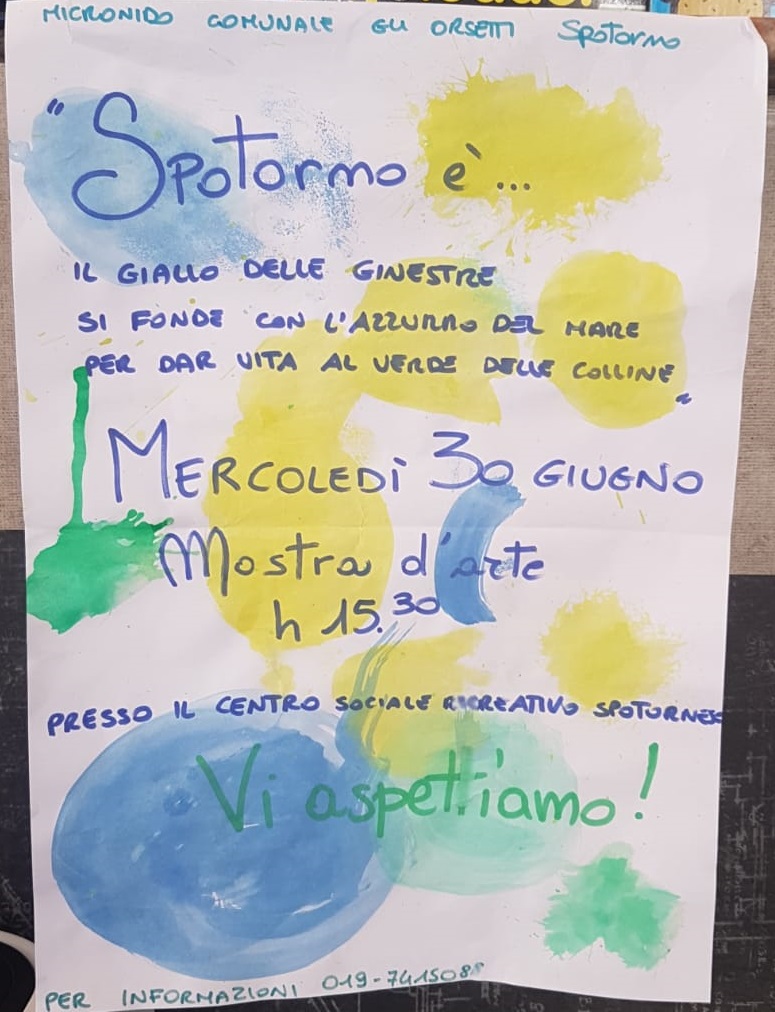 MICRONIDO COMUNALE GLI ORSETTI SPOTORNO
"SPOTORNO è...
IL GIALLO DELLE GINESTRE
SI FONDE CON L'AZZURRO DEL MARE
PER DAR VITA AL VERDE DELLE COLLINE"
MERCOLEDÌ 30 GIUGNO
Mostra d'arte
h 15.30
PRESSO IL CENTRO SOCIALE RICREATIVO SPOTORNESE
Vi aspettiamo!
PER INFORMAZIONI